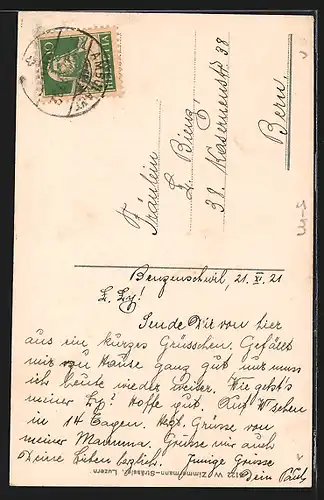 HELVETIA
Fräulein
L. Bieng
38 Kasernenstr. 38
Bern.
Benzenschwil, 21. XI. 21
L. Ly!
Sende Dir von hier
aus ein kurzes Grüsschen. Gefällt
mir zu Hause ganz gut nur muss
ich heute wieder weiter. Wie geht's
meiner Ly? Hoffe gut. Auf W'sehen
in 14 Tagen. Herzl. Grüsse von
meiner Mamma. Grüsse mir auch
Deine Lieben herzlich. Innige Grüsse
Dein Paul
W. Zimmermann-Strässle, Luzern